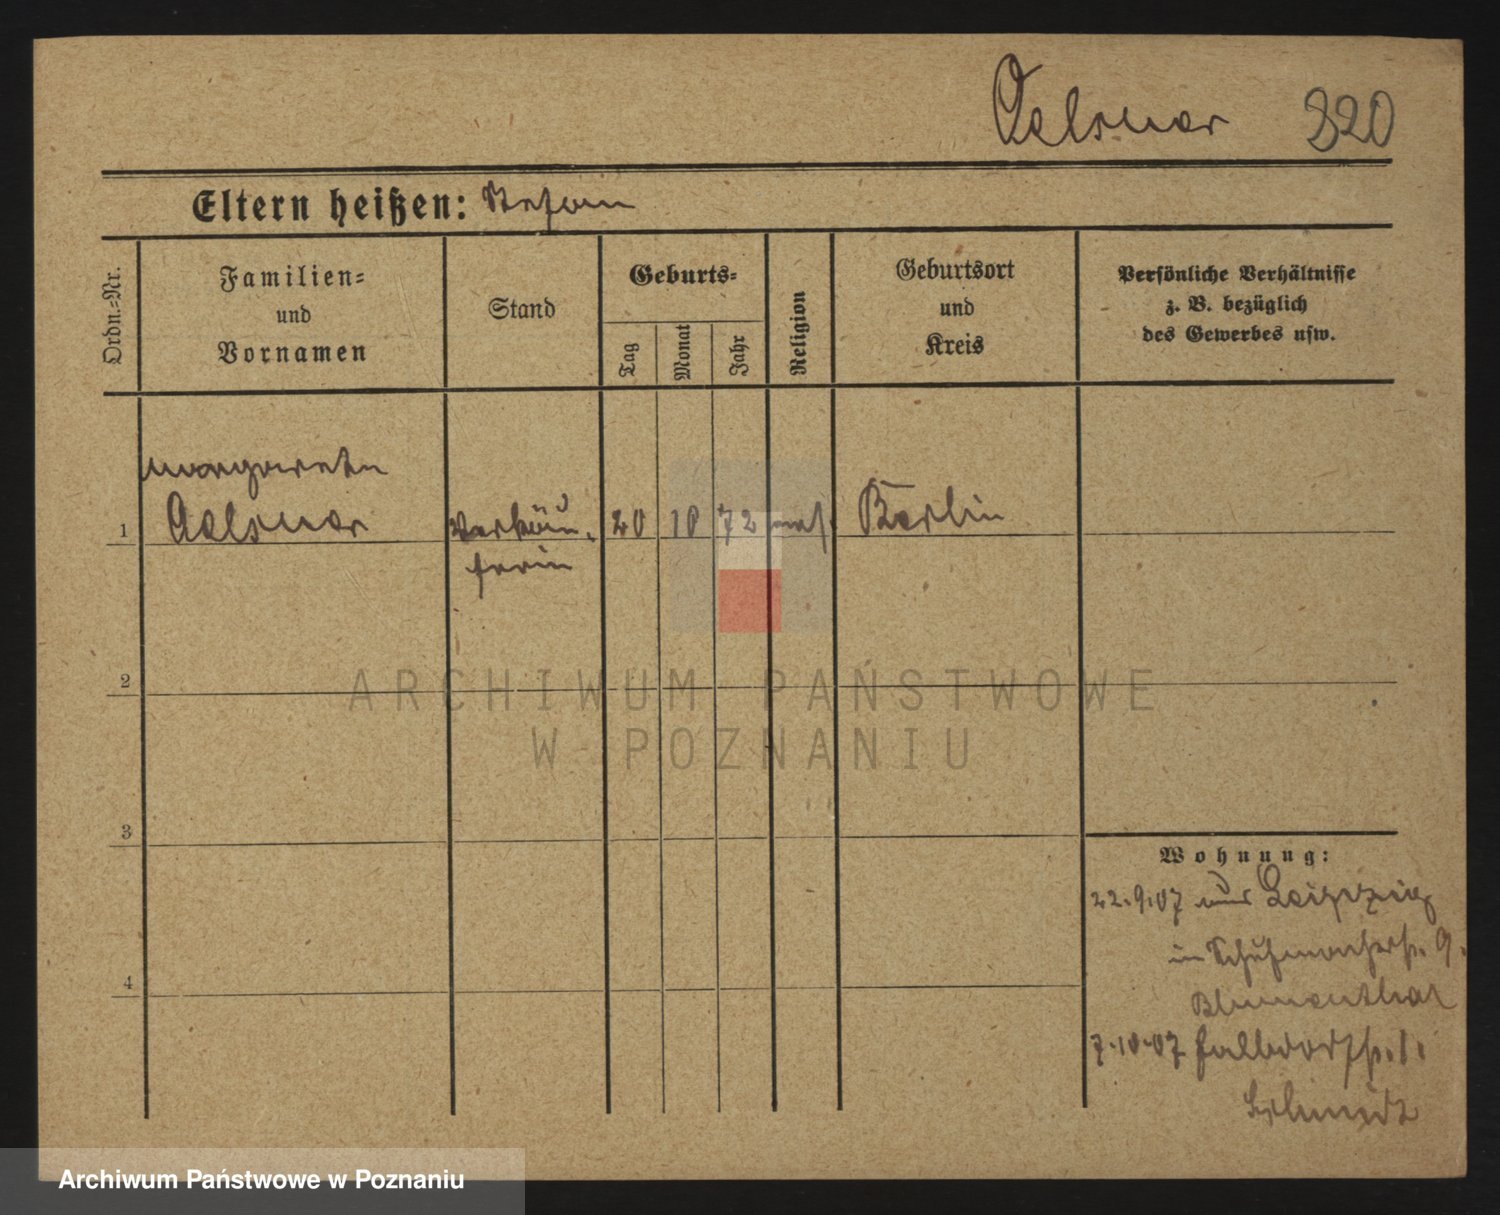 Oelsner 820
Eltern heißen: Stefan
Ordn.-Nr.
Familien-
und
Vornamen
Stand
Geburts-
Tag
Monat
Jahr
Religion
Geburtsort
und
Kreis
Persönliche Verhältnisse
z. B. bezüglich
des Gewerbes usw.
Margarethe
1 Oelsner Verkäu- 20 10 72 mos. Berlin
ferin
2
ARCHIWUM PAŃSTWOWE
W POZNANIU
3
Wohnung:
22.9.07 aus Leipzig
in Schuhmacherstr. 9.
Blumenthal
4
7.10.07 Halbdorfstr. 1.
Schmidt
Archiwum Państwowe w Poznaniu